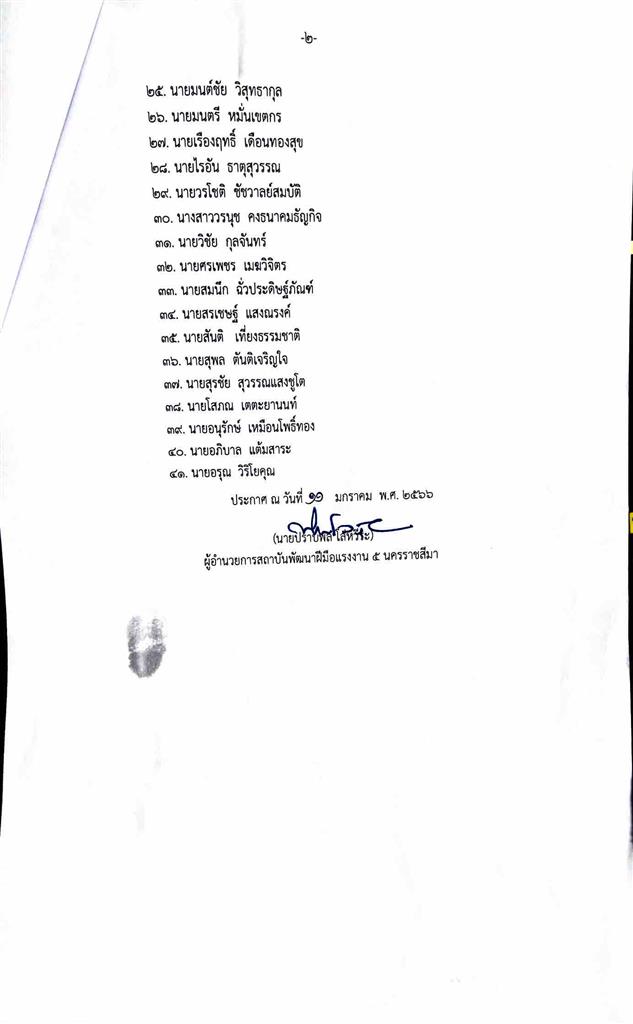 -๒-
๒๕. นายมนต์ชัย วิสุทธากุล
๒๖. นายมนตรี หมั่นเขตกร
๒๗. นายเรืองฤทธิ์ เดือนทองสุข
๒๘. นายไรอัน ธาตุสุวรรณ
๒๙. นายวรโชติ ชัชวาลย์สมบัติ
๓๐. นางสาววรนุช คงธนาคมธัญกิจ
๓๑. นายวิชัย กุลจันทร์
๓๒. นายศรเพชร เมฆวิจิตร
๓๓. นายสมนึก ฉั่วประดิษฐ์ภัณฑ์
๓๔. นายสรเชษฐ์ แสงณรงค์
๓๕. นายสันติ เที่ยงธรรมชาติ
๓๖. นายสุพล ตันติเจริญใจ
๓๗. นายสุรชัย สุวรรณแสงชูโต
๓๘. นายโสภณ เตตะยานนท์
๓๙. นายอนุรักษ์ เหมือนโพธิ์ทอง
๔๐. นายอภิบาล แต้มสาระ
๔๑. นายอรุณ วิริโยคุณ
ประกาศ ณ วันที่ ๑๑ มกราคม พ.ศ. ๒๕๖๖
ผู้อำนวยการสถาบันพัฒนาฝีมือแรงงาน ๕ นครราชสีมา